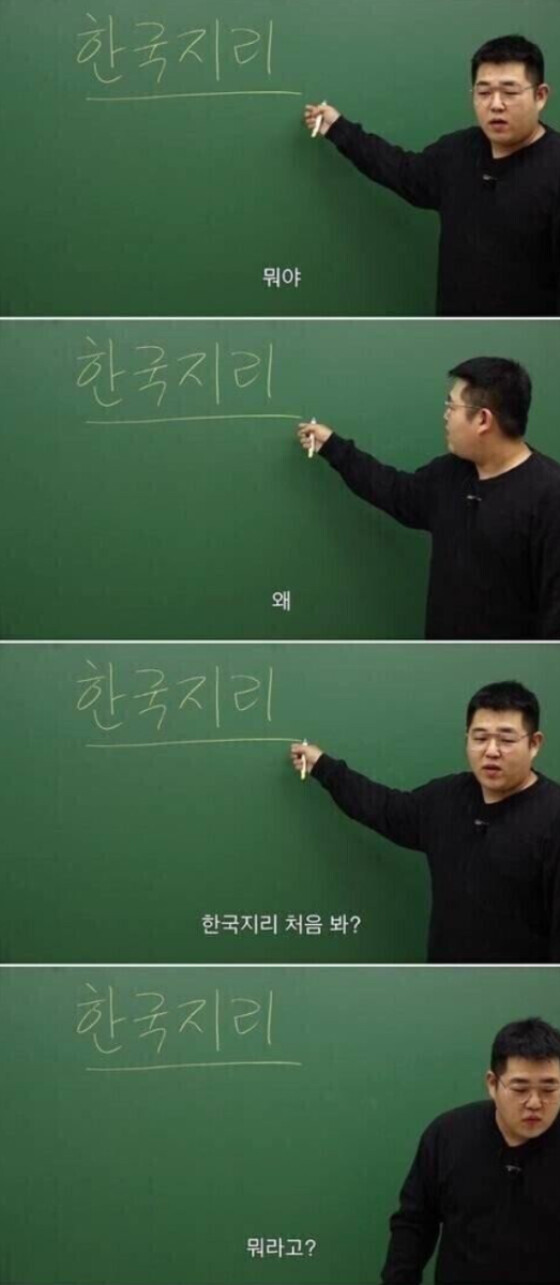 한국지리
뭐야
한국지리
왜
한국지리
한국지리 처음 봐?
한국지리
뭐라고?